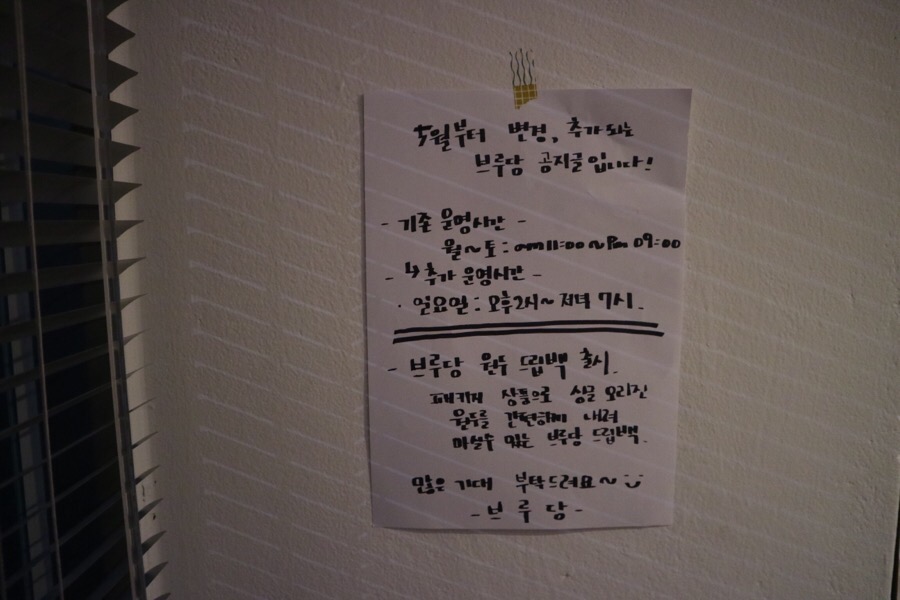 5월부터 변경, 추가되는
브루당 공지글입니다!
- 기존 운영시간 -
월~토 : am 11:00 ~ Pm 09:00
- ↳ 추가 운영시간 -
· 일요일 : 오후 2시 ~ 저녁 7시.
- 브루당 원두 드립백 출시.
패키지 상품으로 싱글 오리진
원두를 간편하게 내려
마실수 있는 브루당 드립백.
많은 기대 부탁드려요~
- 브루당 -